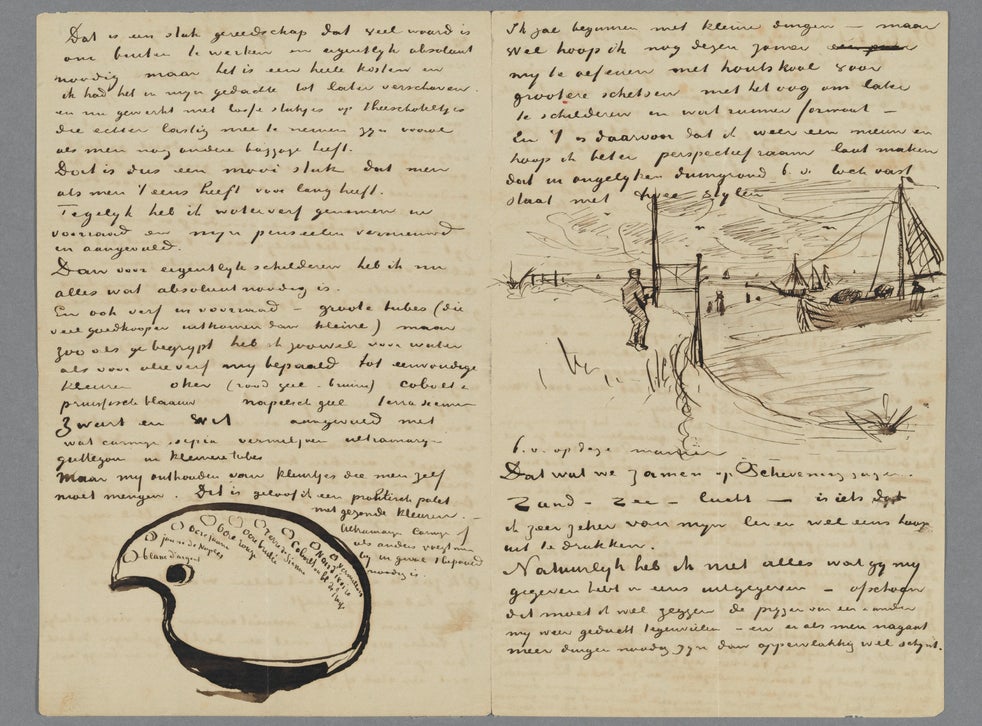 Dat is een stuk gereedschap dat veel waard is
om buiten te werken en eigentlyk absoluut
noodig maar het is een heele kosten en
ik had het in myn gedachte tot later verschoven.
en nu gewerkt met losse stukjes op theeschoteltjes
die echter lastig mee te nemen zyn vooral
als men nog andere baggage heeft.
Dat is dus een mooi stuk dat men
als men 't eens heeft voor lang heeft.
Tegelyk heb ik waterverf genomen in
voorraad en myn penseelen vernieuwd
en aangevuld.
Dan voor eigentlyk schilderen heb ik nu
alles wat absoluut noodig is.
En ook verf in voorraad – groote tubes (die
veel goedkooper uitkomen dan kleine) maar
zoo als ge begrypt heb ik zoowel voor water
als voor olieverf my bepaald tot eenvoudige
kleuren oker (rood geel - bruin) cobolt &
pruissisch blaauw napelsch geel terra sienna
zwart en wit aangevuld met
wat carmyn sepia vermiljoen ultramaryn
guttegom in kleinere tubes
Maar my onthouden van kleurtjes die men zelf
moet mengen. Dit is geloof ik een praktisch palet
met gezonde kleuren. –
Ultramaryn Carmyn of
als anders voegt men
by in geval 't bepaald
noodig is.
blanc d'argent
jaune de Naples
ocre jaune
ocre rouge
ocre brulée
Terre de Sienne
Cobalt
bl de Prusse
Noir d'ivoire
vermillon
Ik zal beginnen met kleine dingen – maar
wel hoop ik nog dezen zomer
my te oefenen met houtskool voor
grootere schetsen met het oog om later
te schilderen in wat ruimer formaat –
En 't is daarvoor dat ik weer een nieuw en
hoop ik beter perspectiefraam laat maken
dat in ongelyken duingrond b.v. toch vast
staat met twee stylen
b.v. op deze manier
Dat wat we zamen op Scheveningen zagen.
Zand – Zee – lucht – is iets dat
ik zeer zeker van myn leven wel eens hoop
uit te drukken.
Natuurlyk heb ik niet alles wat gy my
gegeven hebt in eens uitgegeven – ofschoon
dit moet ik wel zeggen de pryzen van een & ander
my weer geducht tegenvielen – en er als men nagaat
meer dingen noodig zyn dan oppervlakkig wel schynt.